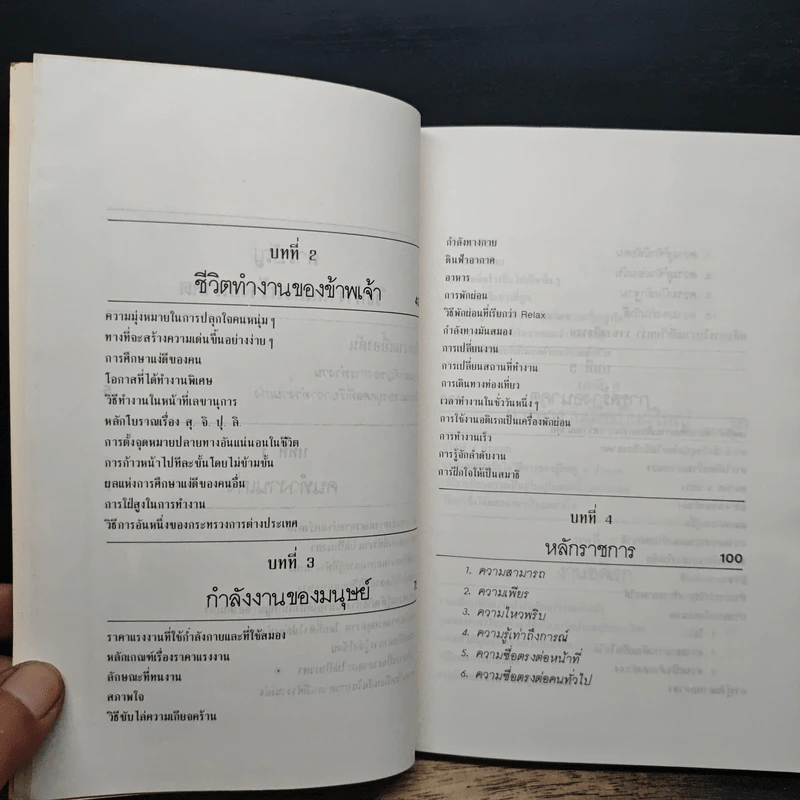 บทที่ 2
ชีวิตทำงานของข้าพเจ้า
ความมุ่งหมายในการปลุกใจคนหนุ่ม ๆ
ทางที่จะสร้างความเด่นขึ้นอย่างง่าย ๆ
การศึกษาแง่ดีของคน
โอกาสที่ได้ทำงานพิเศษ
วิธีทำงานในหน้าที่เลขานุการ
หลักโบราณเรื่อง สุ. จิ. ปุ. ลิ.
การตั้งอุดหมายปลายทางอันแน่นอนในชีวิต
การก้าวหน้าไปทีละขั้นโดยไม่ข้ามขั้น
ผลแห่งการศึกษาแง่ดีของคนอื่น
การใฝ่สูงในการทำงาน
วิธีการอันหนึ่งของกระทรวงการต่างประเทศ
บทที่ 3
กำลังงานของมนุษย์
ราคาแรงงานที่ใช้กำลังกายและที่ใช้สมอง
หลักเกณฑ์เรื่องราคาแรงงาน
ลักษณะที่ทนงาน
สภาพใจ
วิธีขับไล่ความเกียจคร้าน
กำลังทางกาย
ดินฟ้าอากาศ
อาหาร
การพักผ่อน
วิธีพักผ่อนที่เรียกว่า Relax
กำลังทางมันสมอง
การเปลี่ยนงาน
การเปลี่ยนสถานที่ทำงาน
การเดินทางท่องเที่ยว
เวลาทำงานในชั่ววันหนึ่ง ๆ
การใช้งานอดิเรกเป็นเครื่องพักผ่อน
การทำงานเร็ว
การรู้จักลำดับงาน
การฝึกใจให้เป็นสมาธิ
บทที่ 4
หลักราชการ 100
1. ความสามารถ
2. ความเพียร
3. ความไหวพริบ
4. ความรู้เท่าถึงการณ์
5. ความซื่อตรงต่อหน้าที่
6. ความซื่อตรงต่อคนทั่วไป